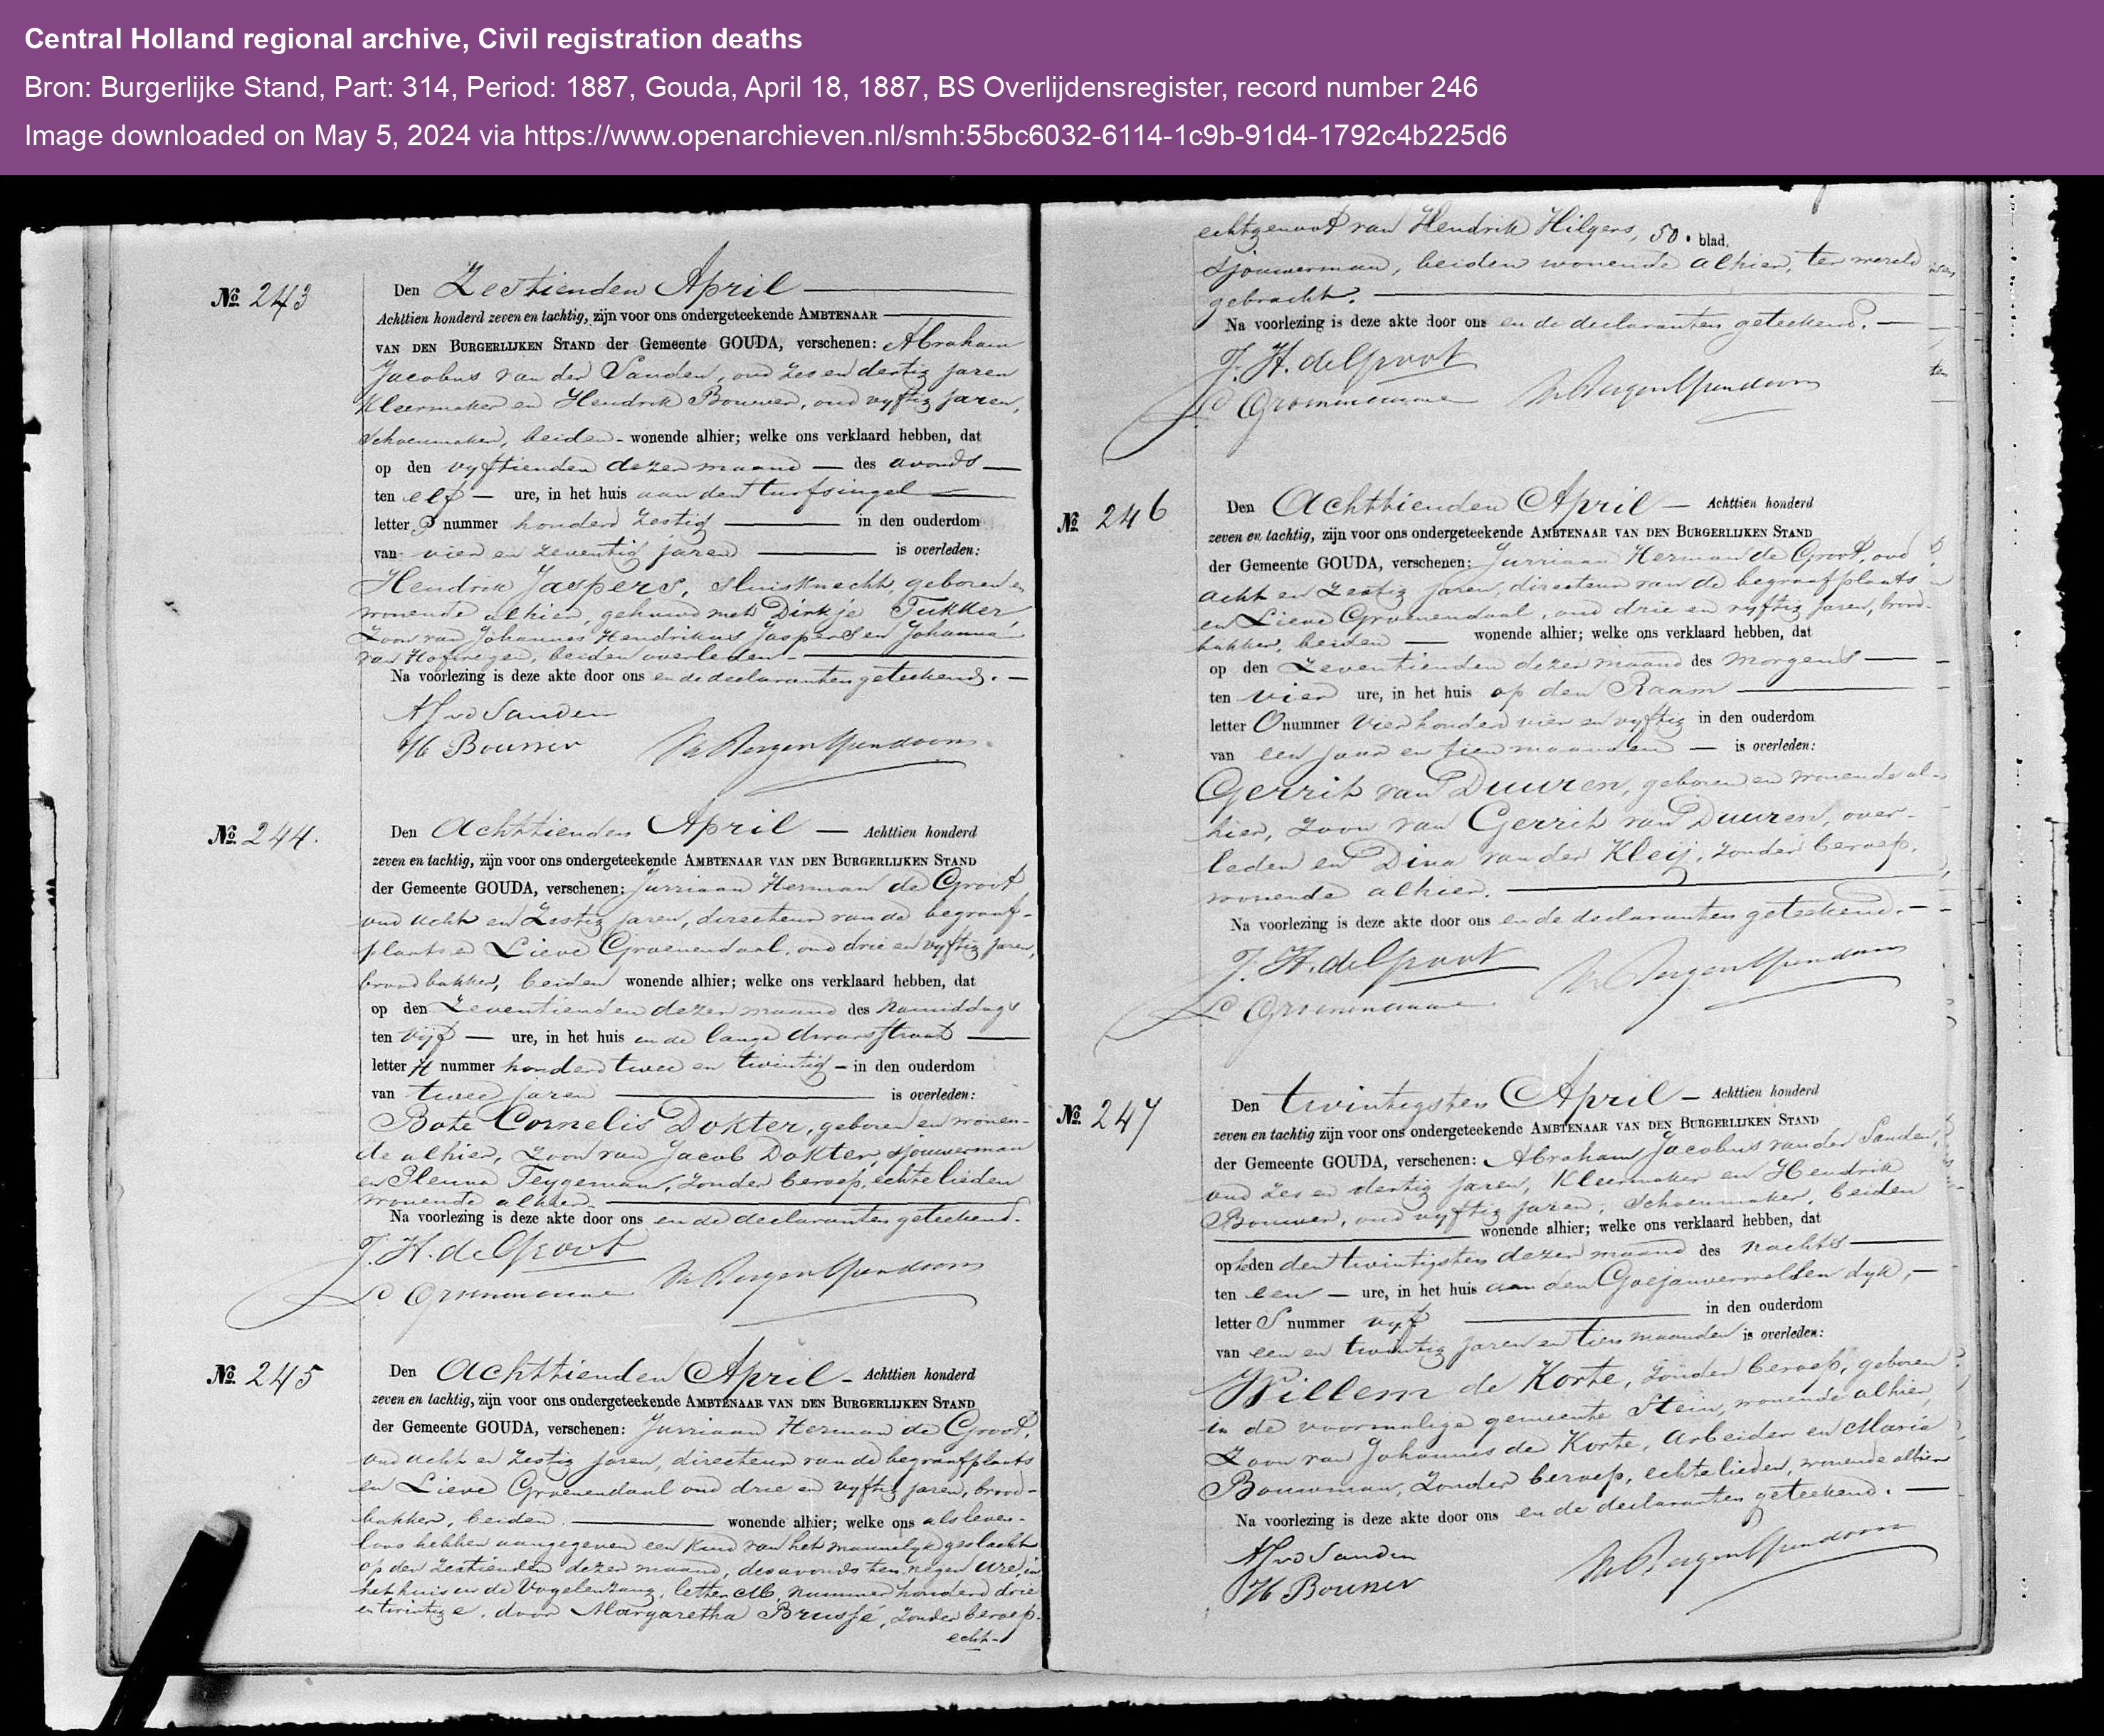 Central Holland regional archive, Civil registration deaths
Bron: Burgerlijke Stand, Part: 314, Period: 1887, Gouda, April 18, 1887, BS Overlijdensregister, record number 246
Image downloaded on May 5, 2024 via https://www.openarchieven.nl/smh:55bc6032-6114-1c9b-91d4-1792c4b225d6
No 243
Den Zestienden April
Achttien honderd zeven en tachtig, zijn voor ons ondergeteekende AMBTENAAR
VAN DEN BURGERLIJKEN STAND der Gemeente GOUDA, verschenen: Abraham
Jacobus van der Sanden, oud zes en dertig jaren
Kleermaker en Hendrik Bouwer, oud vyftig jaren,
Schoenmaker, beiden - wonende alhier; welke ons verklaard hebben, dat
op den vyftienden dezer maand des avonds
ten elf ure, in het huis aan den turfsingel
letter nummer honderd zestig in den ouderdom
van vier en zeventig jaren is overleden:
Hendrik Jaspers, sluisknecht, geboren en
wonende alhier, gehuwd met Dirkje Tukker,
Zoon van Johannes Hendrikus Jaspers en Johanna
van beiden overleden.
Na voorlezing is deze akte door ons en de declaranten geteekend.
AJ vd Sanden
H Bouwer
No 244.
Den Achttienden April Achttien honderd
zeven en tachtig, zijn voor ons ondergeteekende AMBTENAAR VAN DEN BURGERLIJKEN STAND
der Gemeente GOUDA, verschenen: Jurriaan Herman de Groot,
oud acht en zestig jaren, directeur van de begraaf-
plaats en Lieve Groenendaal, oud drie en vyftig jaren,
broodbakker, beiden wonende alhier; welke ons verklaard hebben, dat
op den Zeventienden dezer maand des namiddags
ten vijf ure, in het huis in de lange dwarsstraat
letter H nummer honderd twee en twintig - in den ouderdom
van twee jaren is overleden:
Bote Cornelis Dokter, geboren en wonen-
de alhier, zoon van Jacob Dokter, sjouwerman
en Teygeman, zonder beroep, echtelieden
wonende alhier.
Na voorlezing is deze akte door ons en de declaranten geteekend.
J. H. de Groot
No 245
Den Achttienden April - Achttien honderd
zeven en tachtig, zijn voor ons ondergeteekende AMBTENAAR VAN DEN BURGERLIJKEN STAND
der Gemeente GOUDA, verschenen: Jurriaan Herman de Groot,
oud acht en zestig jaren, directeur van de begraafplaats
en Lieve Groenendaal oud drie en vyftig jaren, brood-
bakker, beiden wonende alhier; welke ons als leven-
loos hebben aangegeven een kind van het mannelyk geslacht
op den zestienden dezer maand, des avonds ten negen ure, in
het huis in de Vogelenzang, letter M, nummer honderd drie
en twintig, door Margaretha Brussé, zonder beroep,
echt-
echtgenoot van Hendrik Hilgers, 50e blad.
sjouwerman, beiden wonende alhier, ter wereld
gebracht.
Na voorlezing is deze akte door ons en de declaranten geteekend.
J. H. de Groot
No 246
Den Achttienden April - Achttien honderd
zeven en tachtig, zijn voor ons ondergeteekende AMBTENAAR VAN DEN BURGERLIJKEN STAND
der Gemeente GOUDA, verschenen: Jurriaan Herman de Groot, oud
acht en zestig jaren, directeur van de begraafplaats
en Lieve Groenendaal, oud drie en vyftig jaren, brood-
bakker, beiden wonende alhier; welke ons verklaard hebben, dat
op den Zeventienden dezer maand des morgens
ten vier ure, in het huis op den Raam
letter O nummer vier honderd vier en vyftig in den ouderdom
van een jaar en tien maanden is overleden:
Gerrit van Duuren, geboren en wonende al-
hier, zoon van Gerrit van Duuren, over-
leden en Dina van der Kleij, zonder beroep,
wonende alhier.
Na voorlezing is deze akte door ons en de declaranten geteekend.
J. H. de Groot
No 247
Den twintigsten April - Achttien honderd
zeven en tachtig zijn voor ons ondergeteekende AMBTENAAR VAN DEN BURGERLIJKEN STAND
der Gemeente GOUDA, verschenen: Abraham Jacobus van der Sanden,
oud zes en dertig jaren, Kleermaker en Hendrik
Bouwer, oud vyftig jaren, Schoenmaker, beiden
wonende alhier; welke ons verklaard hebben, dat
op heden den twintigsten dezer maand des nachts
ten een ure, in het huis aan den Goejanverwellen dyk,
letter S nummer vyf in den ouderdom
van een en twintig jaren en tien maanden is overleden:
Willem de Korte, zonder beroep, geboren
in de voormalige gemeente Stein, wonende alhier,
Zoon van Johannes de Korte, arbeider en Maria
Bouwman, zonder beroep, echtelieden, wonende alhier
Na voorlezing is deze akte door ons en de declaranten geteekend.
AJ vd Sanden
H Bouwer